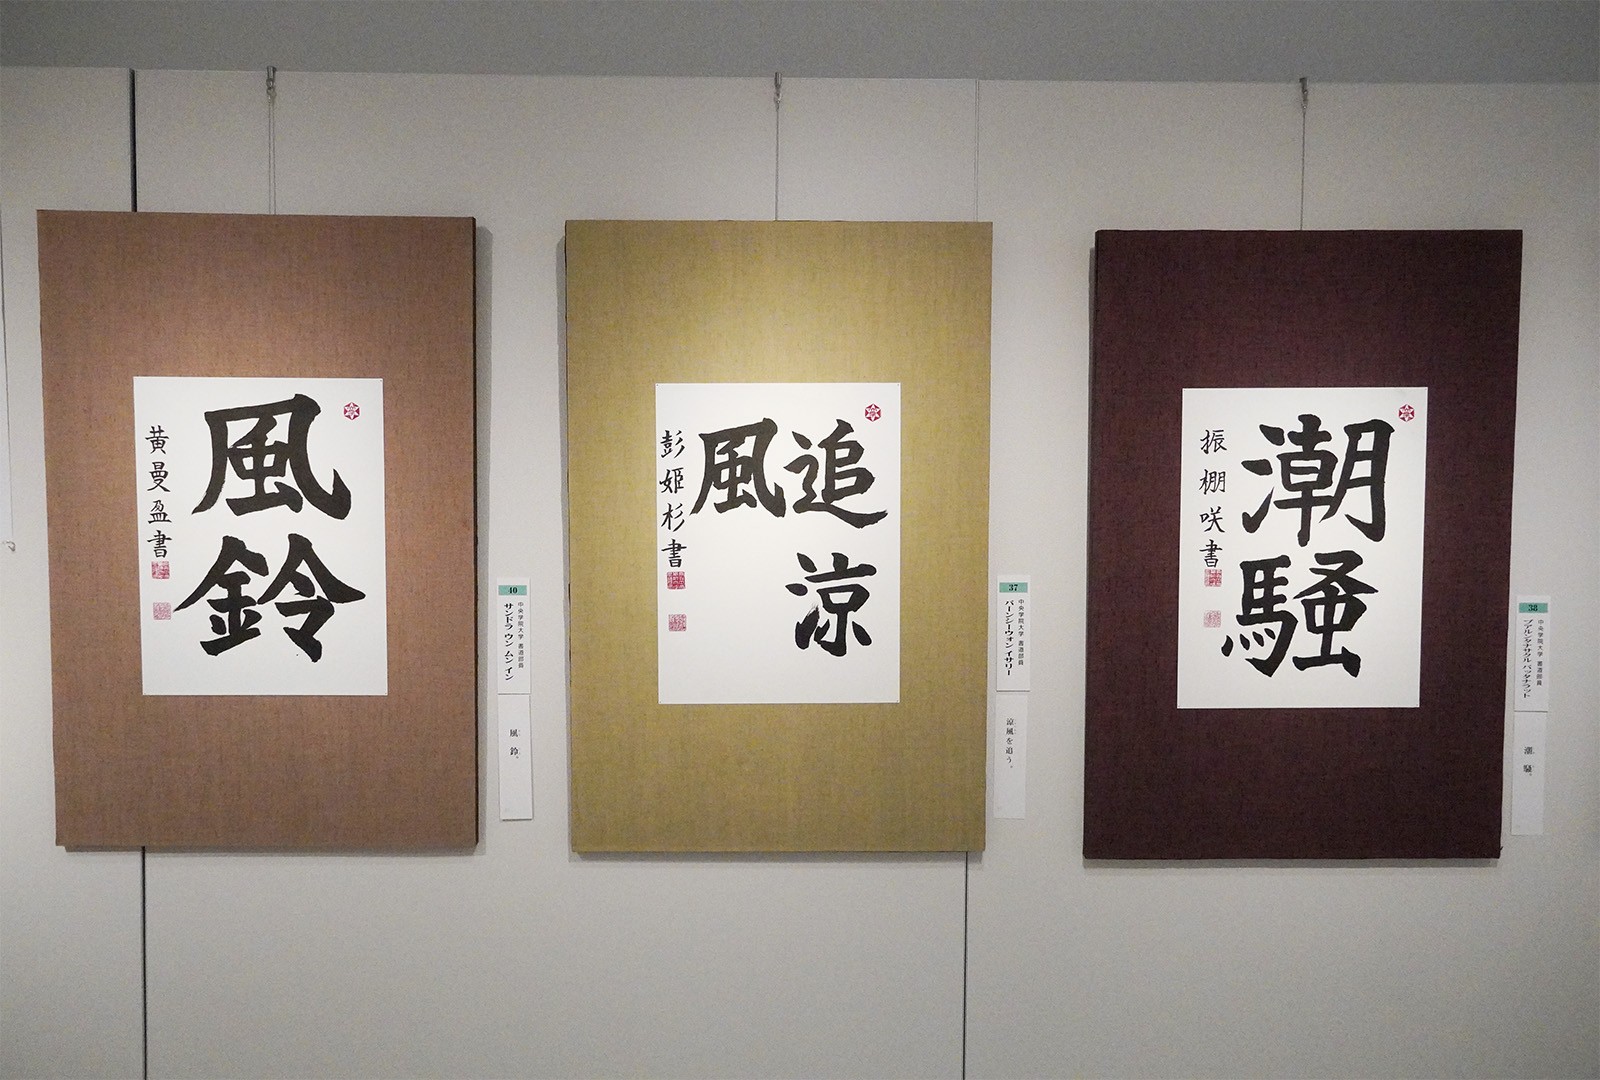 風鈴
黄曼盈書
40
中央学院大学 書道部員
サンドラ ウン ムン イン
風鈴。
追涼
風
彭姫杉書
37
中央学院大学 書道部員
パーンシーウォン イサリー
涼風を追う。
潮騒
振棚咲書
38
中央学院大学 書道部員
潮騒。